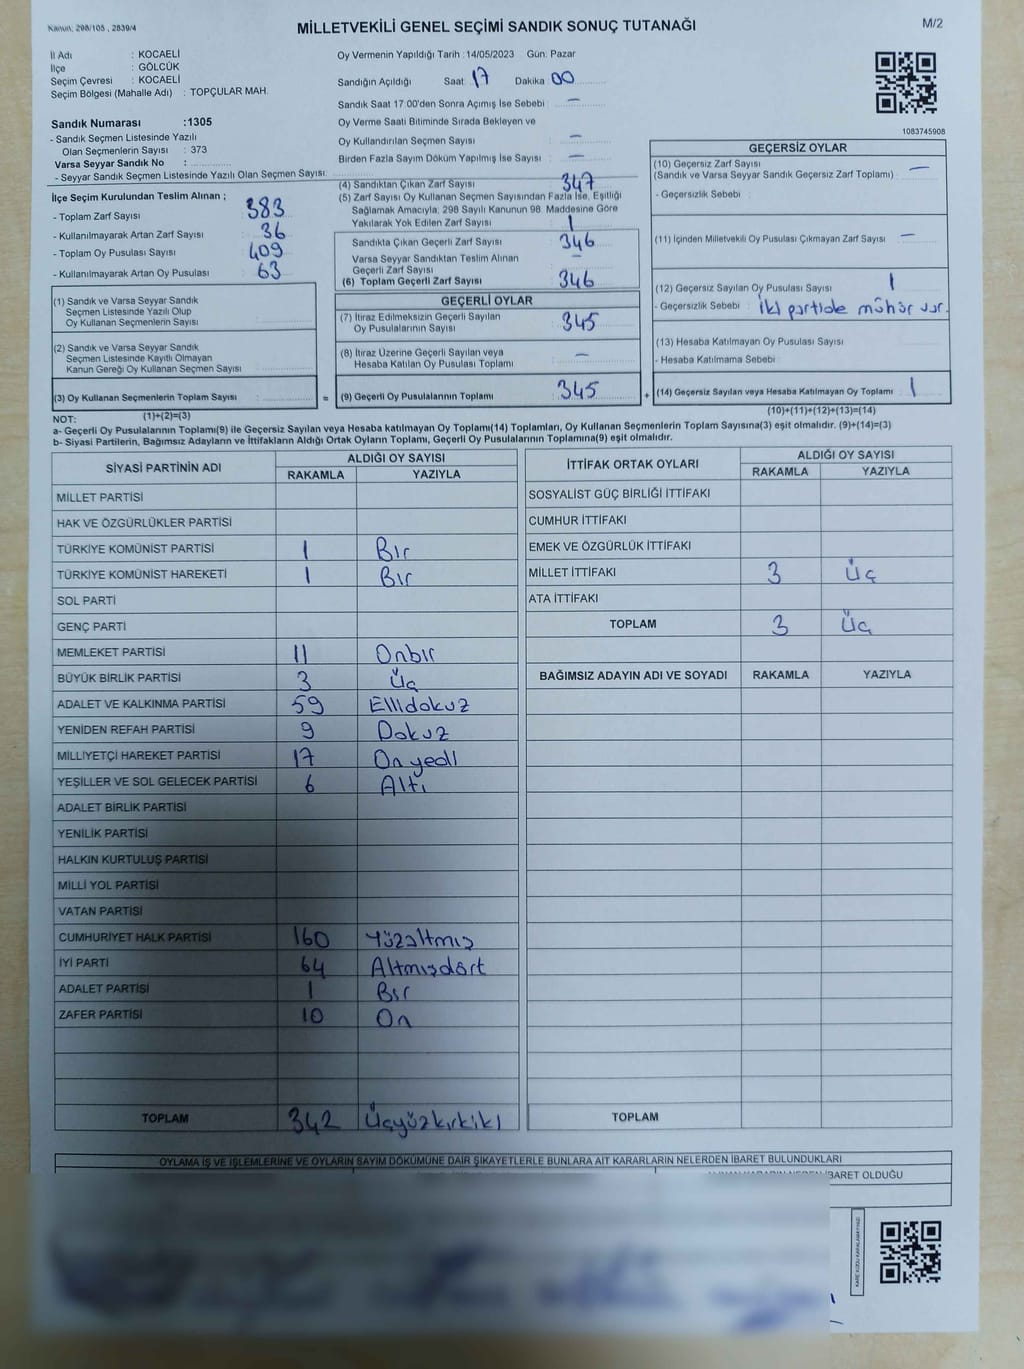 Kanun: 298/105 , 2839/4
MİLLETVEKİLİ GENEL SEÇİMİ SANDIK SONUÇ TUTANAĞI
M/2
İl Adı : KOCAELİ
İlçe : GÖLCÜK
Seçim Çevresi : KOCAELİ
Seçim Bölgesi (Mahalle Adı) : TOPÇULAR MAH.
Sandık Numarası :1305
- Sandık Seçmen Listesinde Yazılı
Olan Seçmenlerin Sayısı : 373
Varsa Seyyar Sandık No :
- Seyyar Sandık Seçmen Listesinde Yazılı Olan Seçmen Sayısı:
Oy Vermenin Yapıldığı Tarih : 14/05/2023 Gün: Pazar
Sandığın Açıldığı Saat: 17 Dakika 00
Sandık Saat 17:00'den Sonra Açımış İse Sebebi : —
Oy Verme Saati Bitiminde Sırada Bekleyen ve
Oy Kullandırılan Seçmen Sayısı : —
Birden Fazla Sayım Döküm Yapılmış İse Sayısı : —
1083745908
İlçe Seçim Kurulundan Teslim Alınan ;
- Toplam Zarf Sayısı : 383
- Kullanılmayarak Artan Zarf Sayısı : 36
- Toplam Oy Pusulası Sayısı : 409
- Kullanılmayarak Artan Oy Pusulası : 63
(1) Sandık ve Varsa Seyyar Sandık
Seçmen Listesinde Yazılı Olup
Oy Kullanan Seçmenlerin Sayısı :
(2) Sandık ve Varsa Seyyar Sandık
Seçmen Listesinde Kayıtlı Olmayan
Kanun Gereği Oy Kullanan Seçmen Sayısı :
(3) Oy Kullanan Seçmenlerin Toplam Sayısı :
(1)+(2)=(3)
(4) Sandıktan Çıkan Zarf Sayısı : 347
(5) Zarf Sayısı Oy Kullanan Seçmen Sayısından Fazla İse, Eşitliği
Sağlamak Amacıyla, 298 Sayılı Kanunun 98. Maddesine Göre
Yakılarak Yok Edilen Zarf Sayısı : 1
Sandıkta Çıkan Geçerli Zarf Sayısı : 346
Varsa Seyyar Sandıktan Teslim Alınan
Geçerli Zarf Sayısı : —
(6) Toplam Geçerli Zarf Sayısı : 346
GEÇERLİ OYLAR
(7) İtiraz Edilmeksizin Geçerli Sayılan
Oy Pusulalarının Sayısı : 345
(8) İtiraz Üzerine Geçerli Sayılan veya
Hesaba Katılan Oy Pusulası Toplamı : —
= (9) Geçerli Oy Pusulalarının Toplamı : 345 +
GEÇERSİZ OYLAR
(10) Geçersiz Zarf Sayısı
(Sandık ve Varsa Seyyar Sandık Geçersiz Zarf Toplamı) : —
- Geçersizlik Sebebi :
(11) İçinden Milletvekili Oy Pusulası Çıkmayan Zarf Sayısı : —
(12) Geçersiz Sayılan Oy Pusulası Sayısı : 1
- Geçersizlik Sebebi : iki partide mühür var.
(13) Hesaba Katılmayan Oy Pusulası Sayısı :
- Hesaba Katılmama Sebebi :
(14) Geçersiz Sayılan veya Hesaba Katılmayan Oy Toplamı : 1
(10)+(11)+(12)+(13)=(14)
NOT:
a- Geçerli Oy Pusulalarının Toplamı(9) ile Geçersiz Sayılan veya Hesaba katılmayan Oy Toplamı(14) Toplamları, Oy Kullanan Seçmenlerin Toplam Sayısına(3) eşit olmalıdır. (9)+(14)=(3)
b- Siyasi Partilerin, Bağımsız Adayların ve İttifakların Aldığı Ortak Oyların Toplamı, Geçerli Oy Pusulalarının Toplamına(9) eşit olmalıdır.
SİYASİ PARTİNİN ADI ALDIĞI OY SAYISI
RAKAMLA YAZIYLA
MİLLET PARTİSİ
HAK VE ÖZGÜRLÜKLER PARTİSİ
TÜRKİYE KOMÜNİST PARTİSİ 1 Bir
TÜRKİYE KOMÜNİST HAREKETİ 1 Bir
SOL PARTİ
GENÇ PARTİ
MEMLEKET PARTİSİ 11 Onbir
BÜYÜK BİRLİK PARTİSİ 3 Üç
ADALET VE KALKINMA PARTİSİ 59 Ellidokuz
YENİDEN REFAH PARTİSİ 9 Dokuz
MİLLİYETÇİ HAREKET PARTİSİ 17 On yedi
YEŞİLLER VE SOL GELECEK PARTİSİ 6 Altı
ADALET BİRLİK PARTİSİ
YENİLİK PARTİSİ
HALKIN KURTULUŞ PARTİSİ
MİLLİ YOL PARTİSİ
VATAN PARTİSİ
CUMHURİYET HALK PARTİSİ 160 Yüzaltmış
İYİ PARTİ 64 Altmışdört
ADALET PARTİSİ 1 Bir
ZAFER PARTİSİ 10 On
TOPLAM 342 Üçyüzkırkiki
İTTİFAK ORTAK OYLARI ALDIĞI OY SAYISI
RAKAMLA YAZIYLA
SOSYALİST GÜÇ BİRLİĞİ İTTİFAKI
CUMHUR İTTİFAKI
EMEK VE ÖZGÜRLÜK İTTİFAKI
MİLLET İTTİFAKI 3 Üç
ATA İTTİFAKI
TOPLAM 3 Üç
BAĞIMSIZ ADAYIN ADI VE SOYADI RAKAMLA YAZIYLA
TOPLAM
OYLAMA İŞ VE İŞLEMLERİNE VE OYLARIN SAYIM DÖKÜMÜNE DAİR ŞİKAYETLERLE BUNLARA AİT KARARLARIN NELERDEN İBARET BULUNDUKLARI
İBARET OLDUĞU